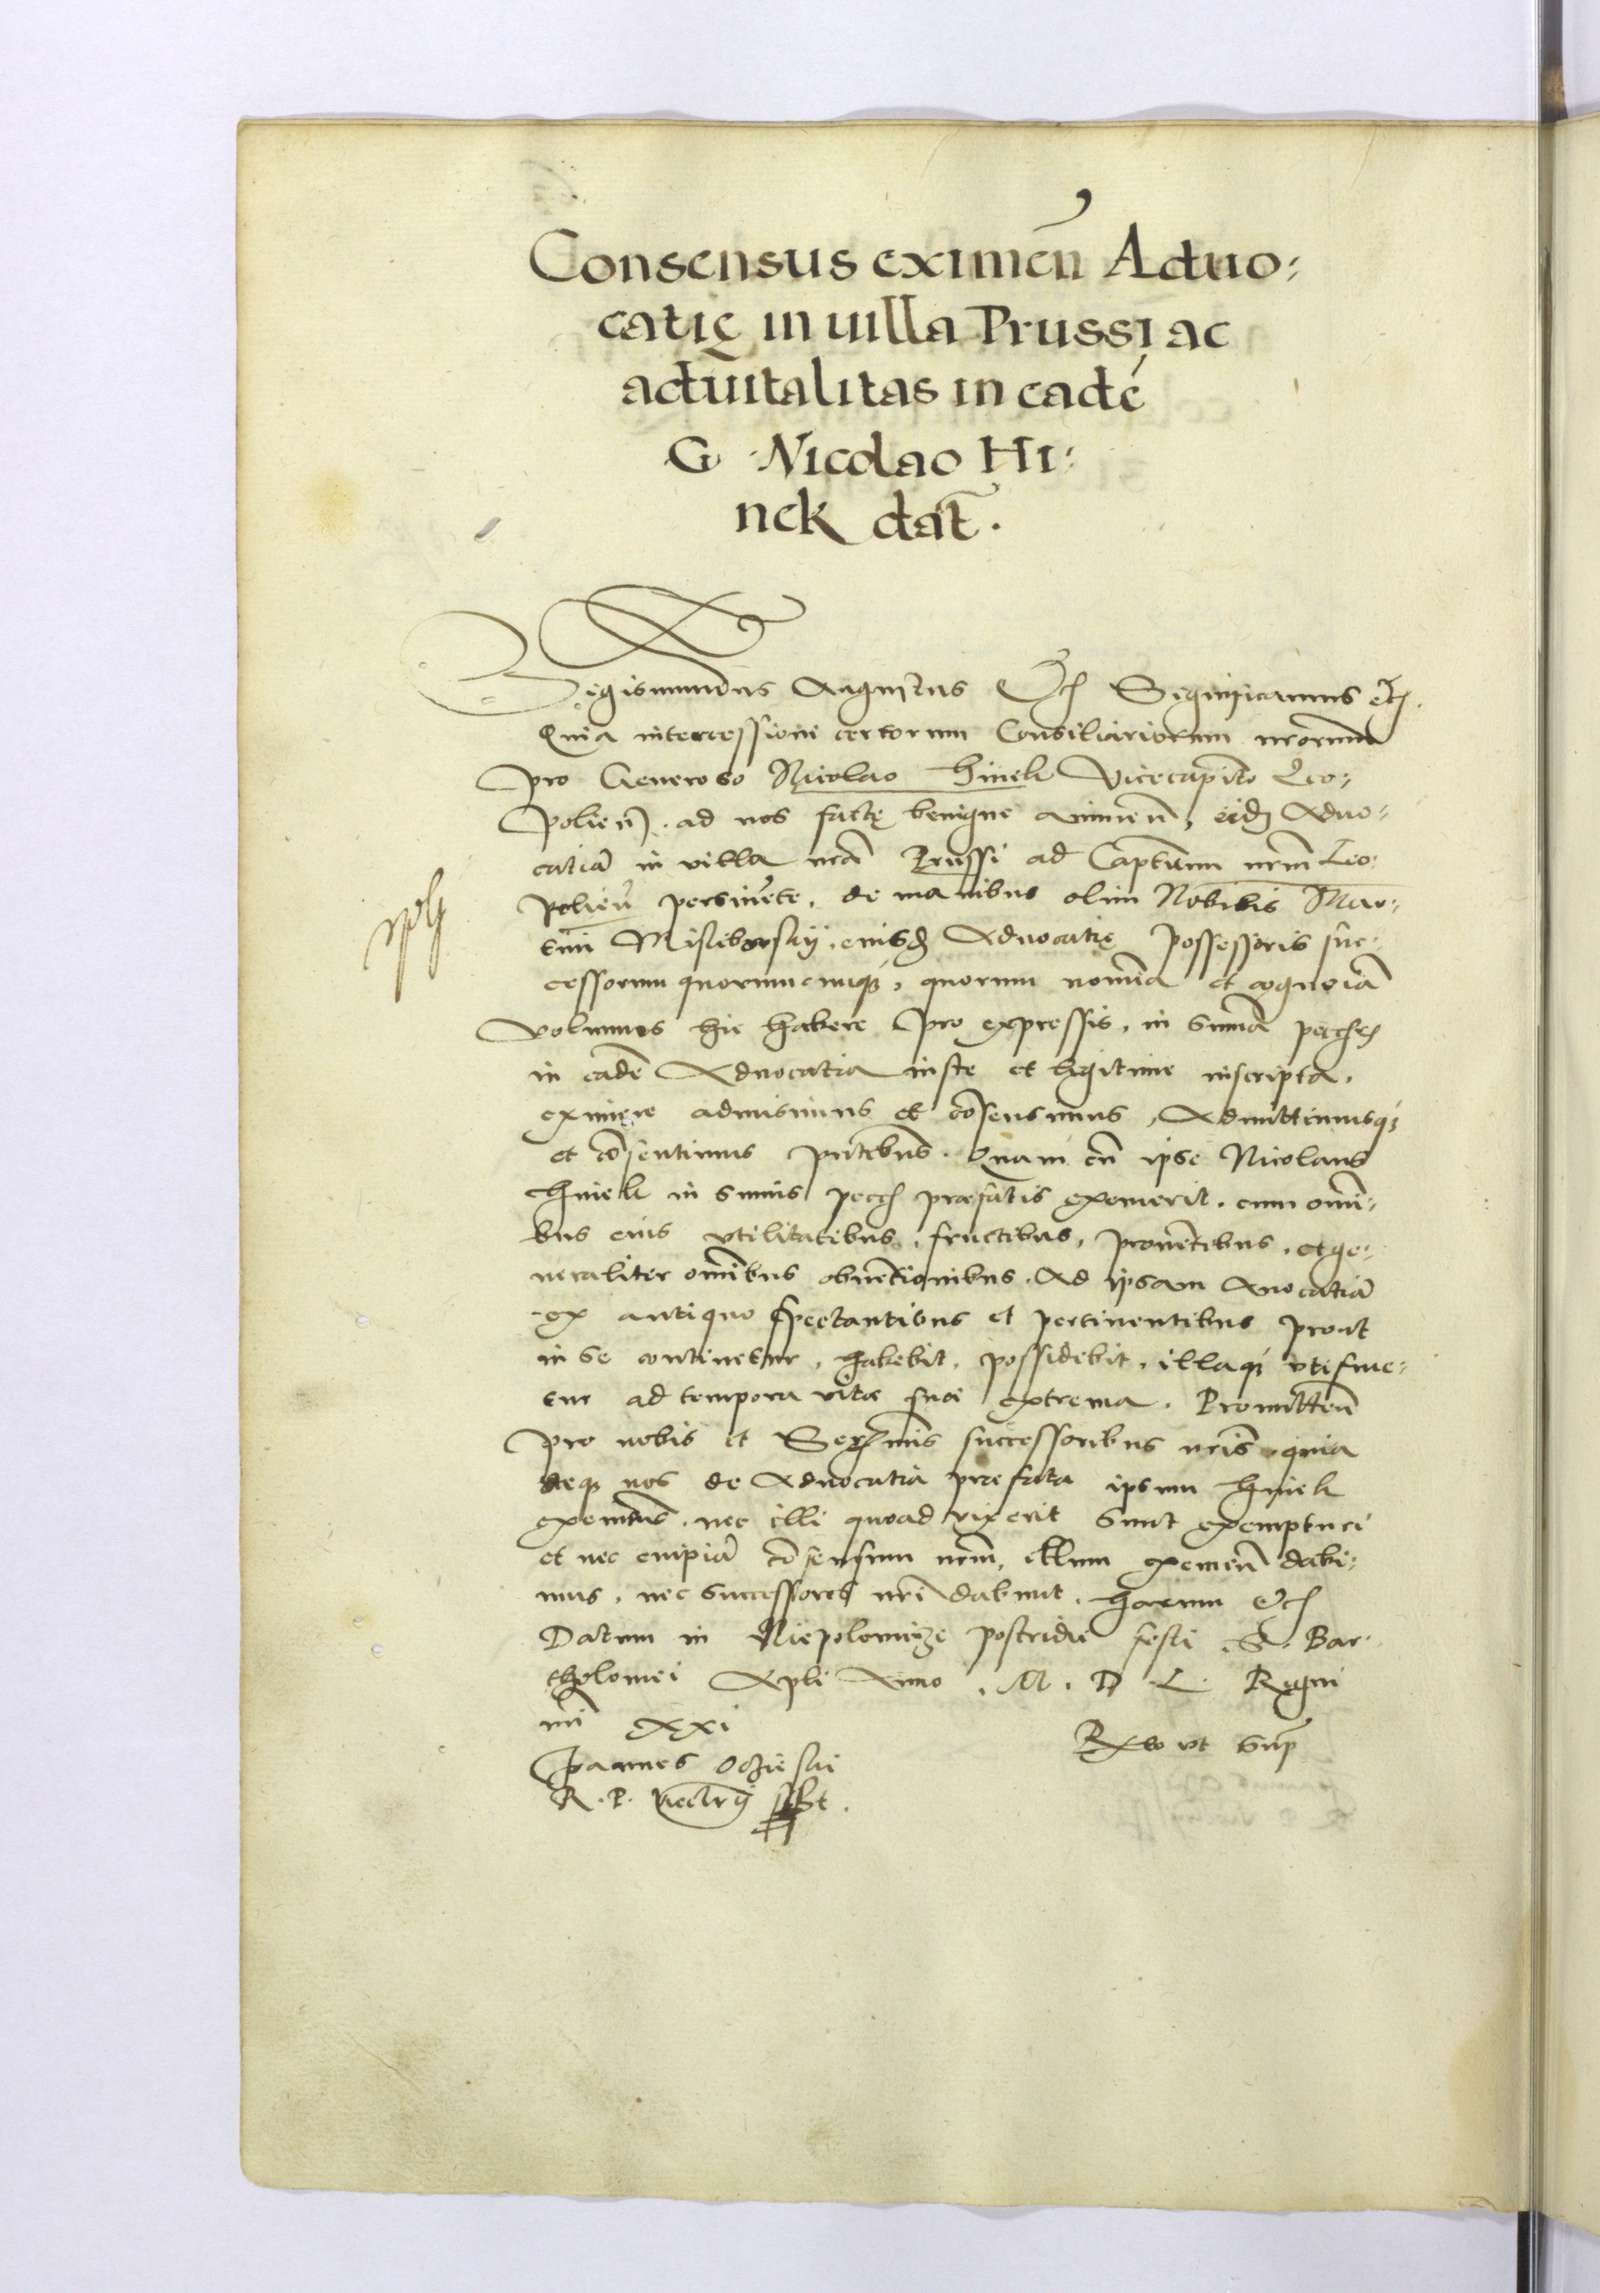 Consensus eximeñ Aduo:
catię in uilla Prussi ac
aduitalitas in eadē
G. Nicolao Hi:
nek dat̃.
Sigismundus Augustus Etc Significamus etc.
Quia intercessioni certorum Consiliariorum nrorum
pro Generoso Nicolao Hinek Vicecapitō Leo:
polien̄. ad nos factę benigne annuen̄, eidē Aduo:
catiā in villa nrā Prussi ad Captum nrm̄ Leo:
polien̄ pertinētē, de manibus olim Nobilis Mar:
tini Misiborskij, eiusdē Aduocatię possessoris suc:
cessorum quorumcunq, quorum nomīa et cognoīa
volumus hic habere pro expressis, in summā peccs
in eadē Aduocatia iuste et legitime inscripta,
eximere admisimus et cōsensimus, Admittimusq
et cōsentimus pntibus. Quam cū ipse Nicolaus
Hinek in summis pecc præfatis exemerit, cum omī:
bus eius vtilitatibus, fructibus, prouētibus, et ge:
neraliter omībus obuētionibus. Ad ipsam Auocatiā
ex antiquo spectantibus et pertinentibus prout
in se continetur, habebit, possidebit, illaq vtifrue:
tur ad tempora vitæ suæ extrema. Promitten̄
pro nobis et Sermis successoribus nris quia
neq nos de Aduocatia præfata ipsum Hinek
exememus, nec illi quoad vixerit sunt exempturi
et nec cuipiā cōsensum nrm̄, illum eximen̄ dabi:
mus, nec successores nri dabunt. Harum Etc
Datum in Niepolomicze postridie festi S. Bar:
tholomei Apli Anno. M. D. L. Regni
nri XXI
Joannes Oczieski Rxw vt sup
R. P. Vicecancrij sspt.